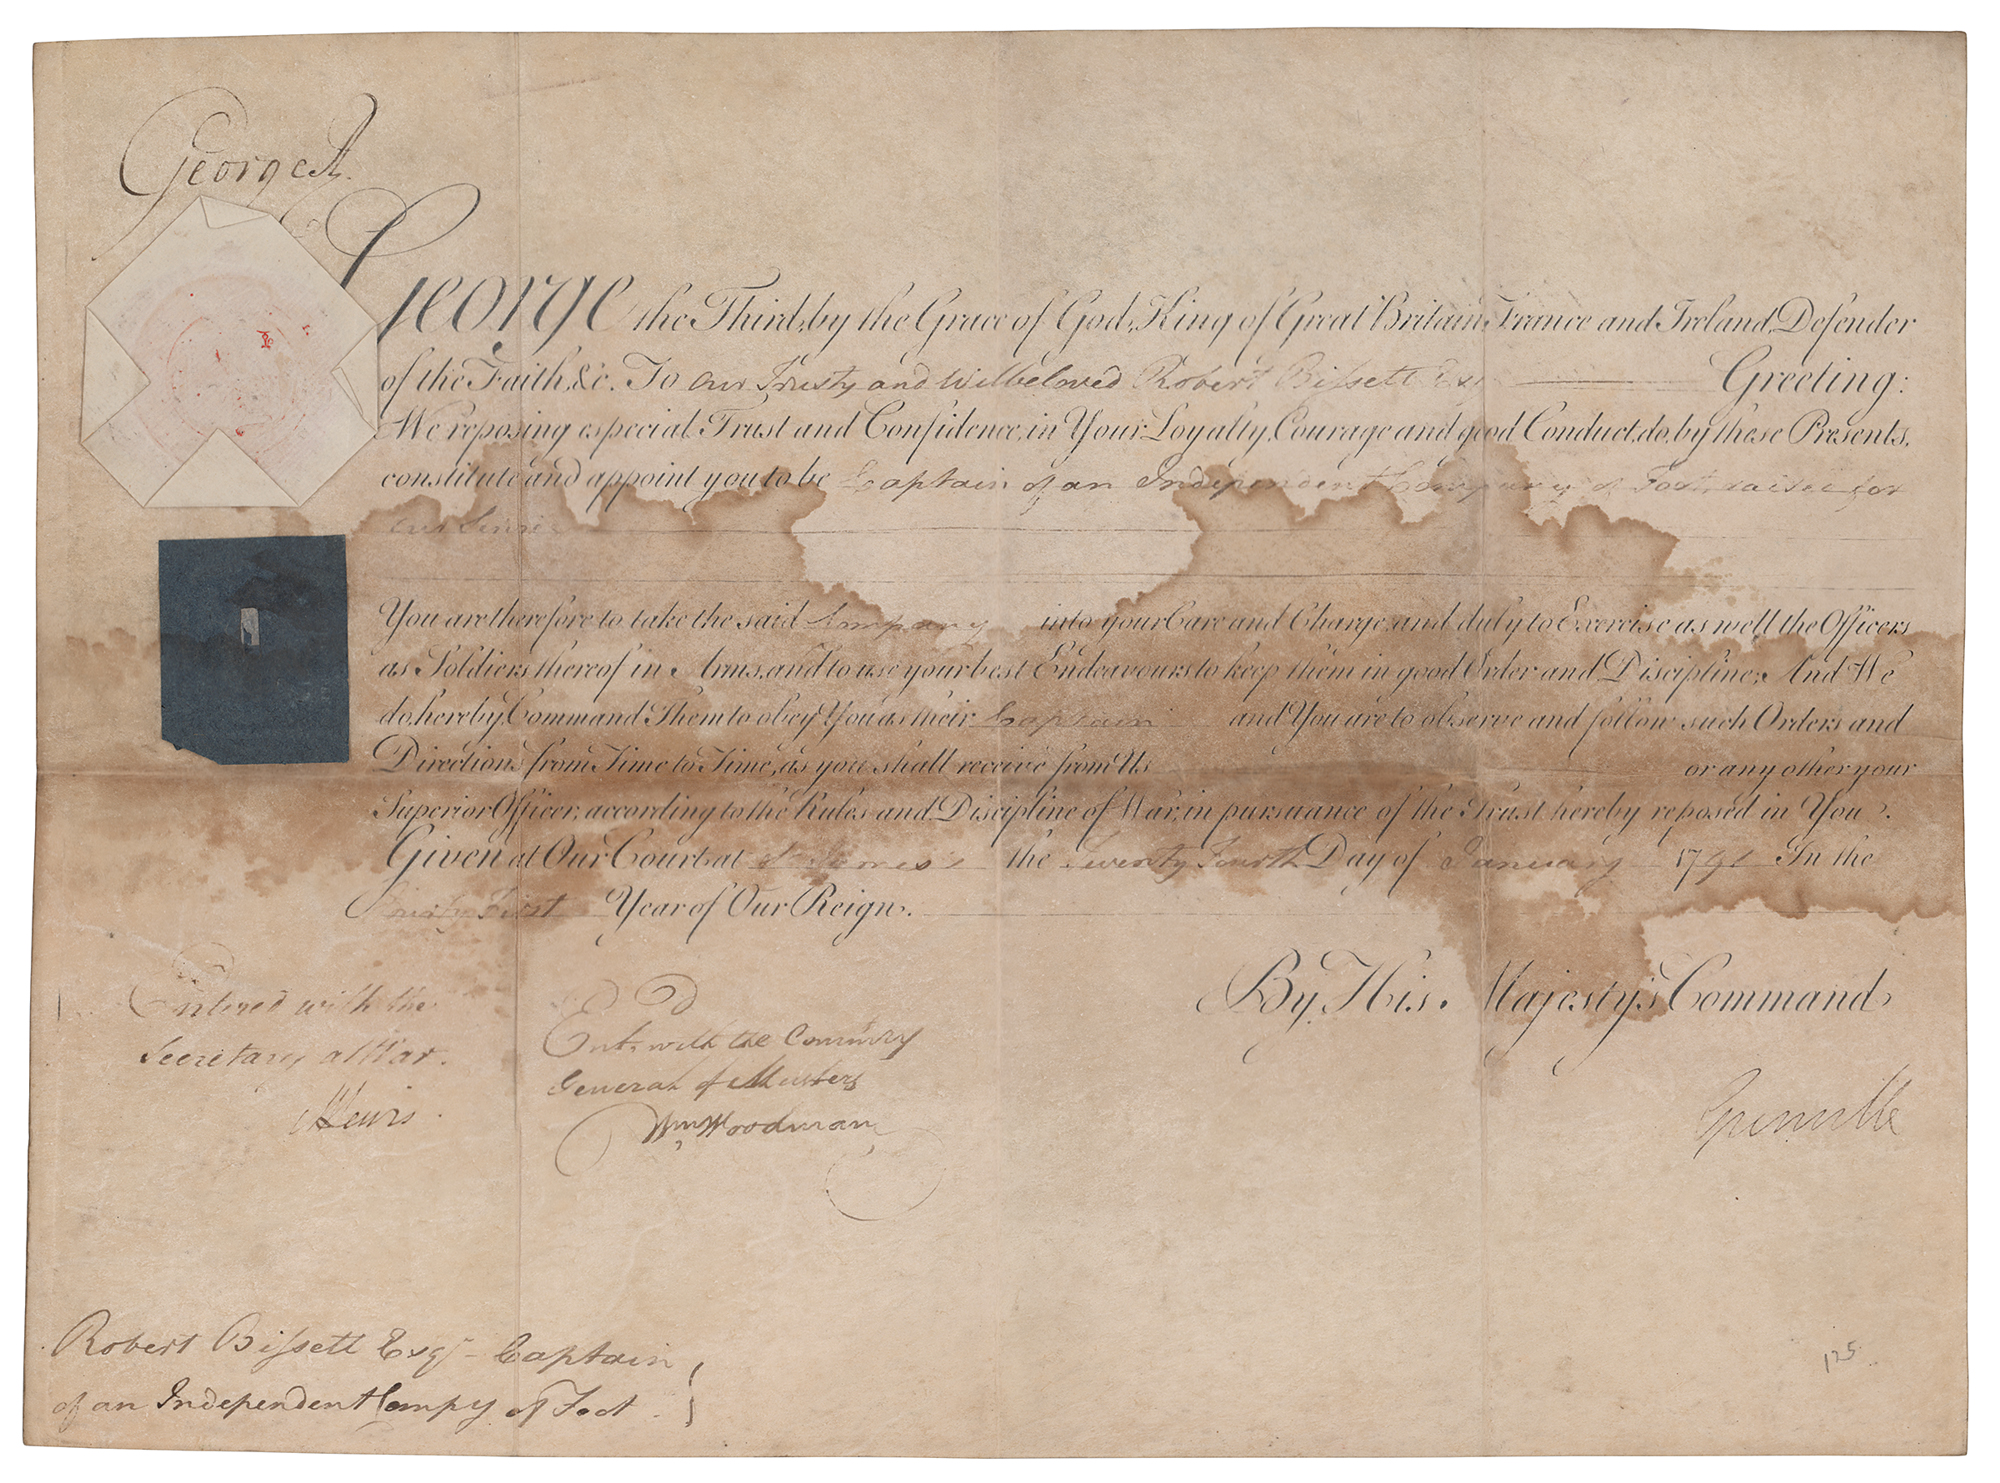 George R.
George the Third, by the Grace of God, King of Great Britain, France and Ireland, Defender
of the Faith, &c. To Our Trusty and Welbeloved Robert Bissett Esqr Greeting:
We reposing especial Trust and Confidence in Your Loyalty, Courage and good Conduct, do, by these Presents,
constitute and appoint you to be Captain of an Independent Company of Foot, raised for
our Service
You are therefore to take the said Company into your Care and Charge, and duly to Exercise as well the Officers
as Soldiers thereof in Arms, and to use your best Endeavours to keep them in good Order and Discipline; And We
do hereby Command Them to obey You as their Captain and You are to observe and follow such Orders and
Directions from Time to Time, as you shall receive from Us or any other your
Superior Officer, according to the Rules and Discipline of War, in pursuance of the Trust hereby reposed in You.
Given at Our Court at St James's the Twenty Fourth Day of January 1791 In the
Thirty First Year of Our Reign.
By His Majesty's Command
Entered with the
Secretary at War.
MLewis.
Entd with the Commry
General of Musters
Wm Woodman
Grenville
Robert Bissett Esqr - Captain
of an Independent Compy of Foot.
125